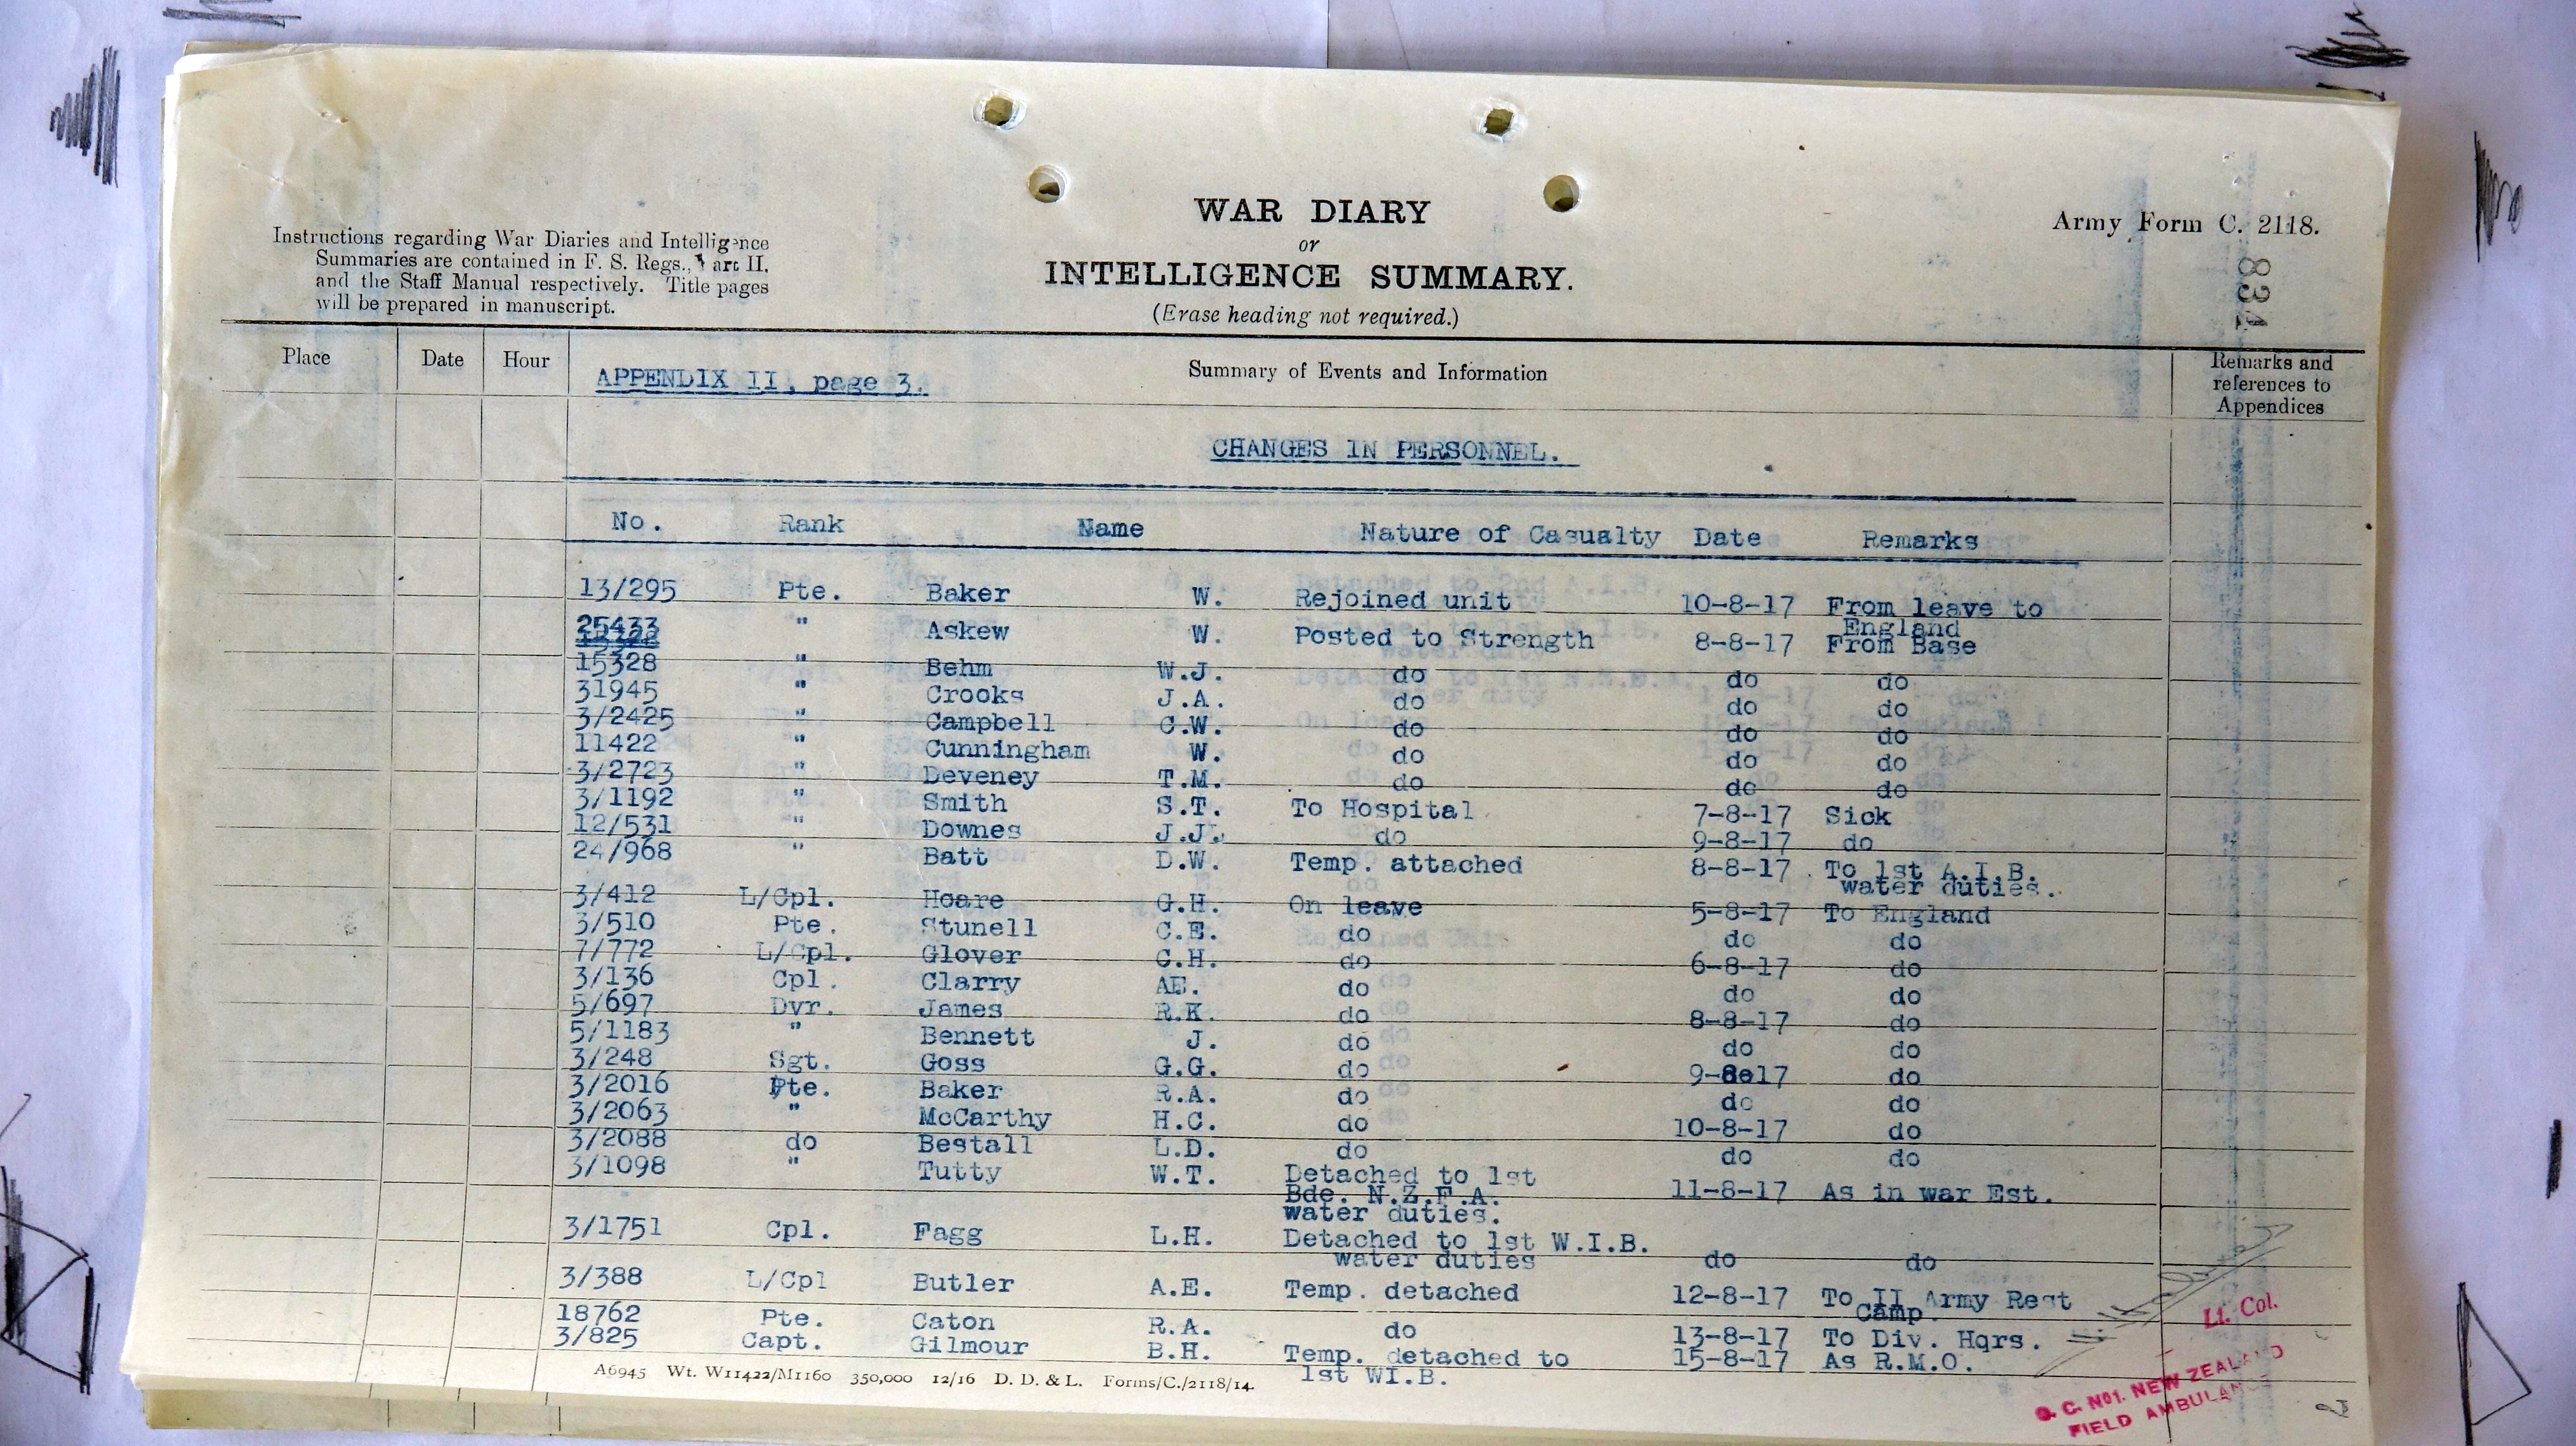 WAR DIARY
or
INTELLIGENCE SUMMARY.
(Erase heading not required.)
Army Form C. 2118.
834
Instructions regarding War Diaries and Intelligence
Summaries are contained in F. S. Regs., Part II.
and the Staff Manual respectively. Title pages
will be prepared in manuscript.
Place Date Hour Summary of Events and Information Remarks and
references to
Appendices
APPENDIX II, page 3.
CHANGES IN PERSONNEL.
No. Rank Name Nature of Casualty Date Remarks
13/295 Pte. Baker W. Rejoined unit 10-8-17 From leave to
England
25433 " Askew W. Posted to Strength 8-8-17 From Base
15328 " Behm W.J. do do do
31945 " Crooks J.A. do do do
3/2425 " Campbell C.W. do do do
11422 " Cunningham W. do do do
3/2723 " Deveney T.M. do do do
3/1192 " Smith S.T. To Hospital 7-8-17 Sick
12/531 " Downes J.J. do 9-8-17 do
24/968 " Batt D.W. Temp. attached 8-8-17 To 1st A.I.B.
water duties.
3/412 L/Cpl. Hoare G.H. On leave 5-8-17 To England
3/510 Pte. Stunell C.E. do do do
7/772 L/Cpl. Glover C.H. do 6-8-17 do
3/136 Cpl. Clarry AE. do do do
5/697 Dvr. James R.K. do 8-8-17 do
5/1183 " Bennett J. do do do
3/248 Sgt. Goss G.G. do 9-8-17 do
3/2016 Pte. Baker R.A. do do do
3/2063 " McCarthy H.C. do 10-8-17 do
3/2088 do Bestall L.D. do do do
3/1098 " Tutty W.T. Detached to 1st
Bde. N.Z.F.A. 11-8-17 As in war Est.
water duties.
3/1751 Cpl. Fagg L.H. Detached to 1st W.I.B.
water duties do do
3/388 L/Cpl Butler A.E. Temp. detached 12-8-17 To II Army Rest
Camp.
18762 Pte. Caton R.A. do 13-8-17 To Div. Hqrs.
3/825 Capt. Gilmour B.H. Temp. detached to 15-8-17 As R.M.O.
1st WI.B.
Lt. Col.
O. C. No1. NEW ZEALAND
FIELD AMBULANCE
A6945 Wt. W11422/M1160 350,000 12/16 D. D. & L. Forms/C./2118/14.
2